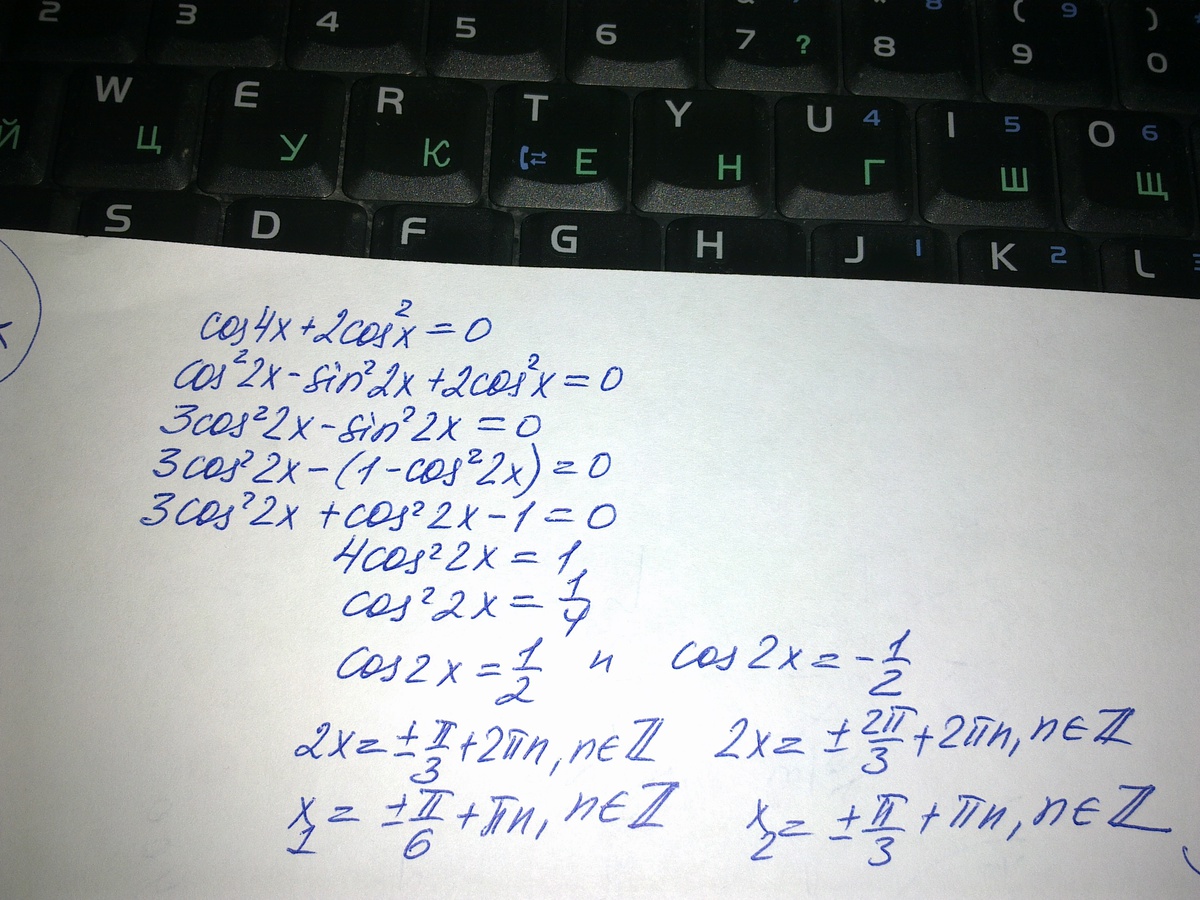 2 3 4 5 6 7 ? 8 8 ( 9 9 ) 0
W E R T Y U 4 I 5 O 6
Й Ц У К Е Н Г Ш Щ
S D F G H J 1 K 2 L
cos4x+2cos²x=0
cos²2x-sin²2x+2cos²x=0
3cos²2x-sin²2x=0
3cos²2x-(1-cos²2x)=0
3cos²2x+cos²2x-1=0
4cos²2x=1
cos²2x=1/4
cos2x=1/2 и cos2x=-1/2
2x=±π/3+2πn, n∈ℤ 2x=±2π/3+2πn, n∈ℤ
x₁=±π/6+πn, n∈ℤ x₂=±π/3+πn, n∈ℤ